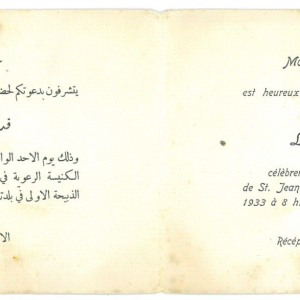 يتشرفون بدعوتكم لحض
وذلك يوم الاحد الوا
الكنيسة الرعوية في
الذبيحة الاولى في بلد
الا
Mo
est heureux
L
célébrer
de St. Jean
1933 à 8 h.
Récép